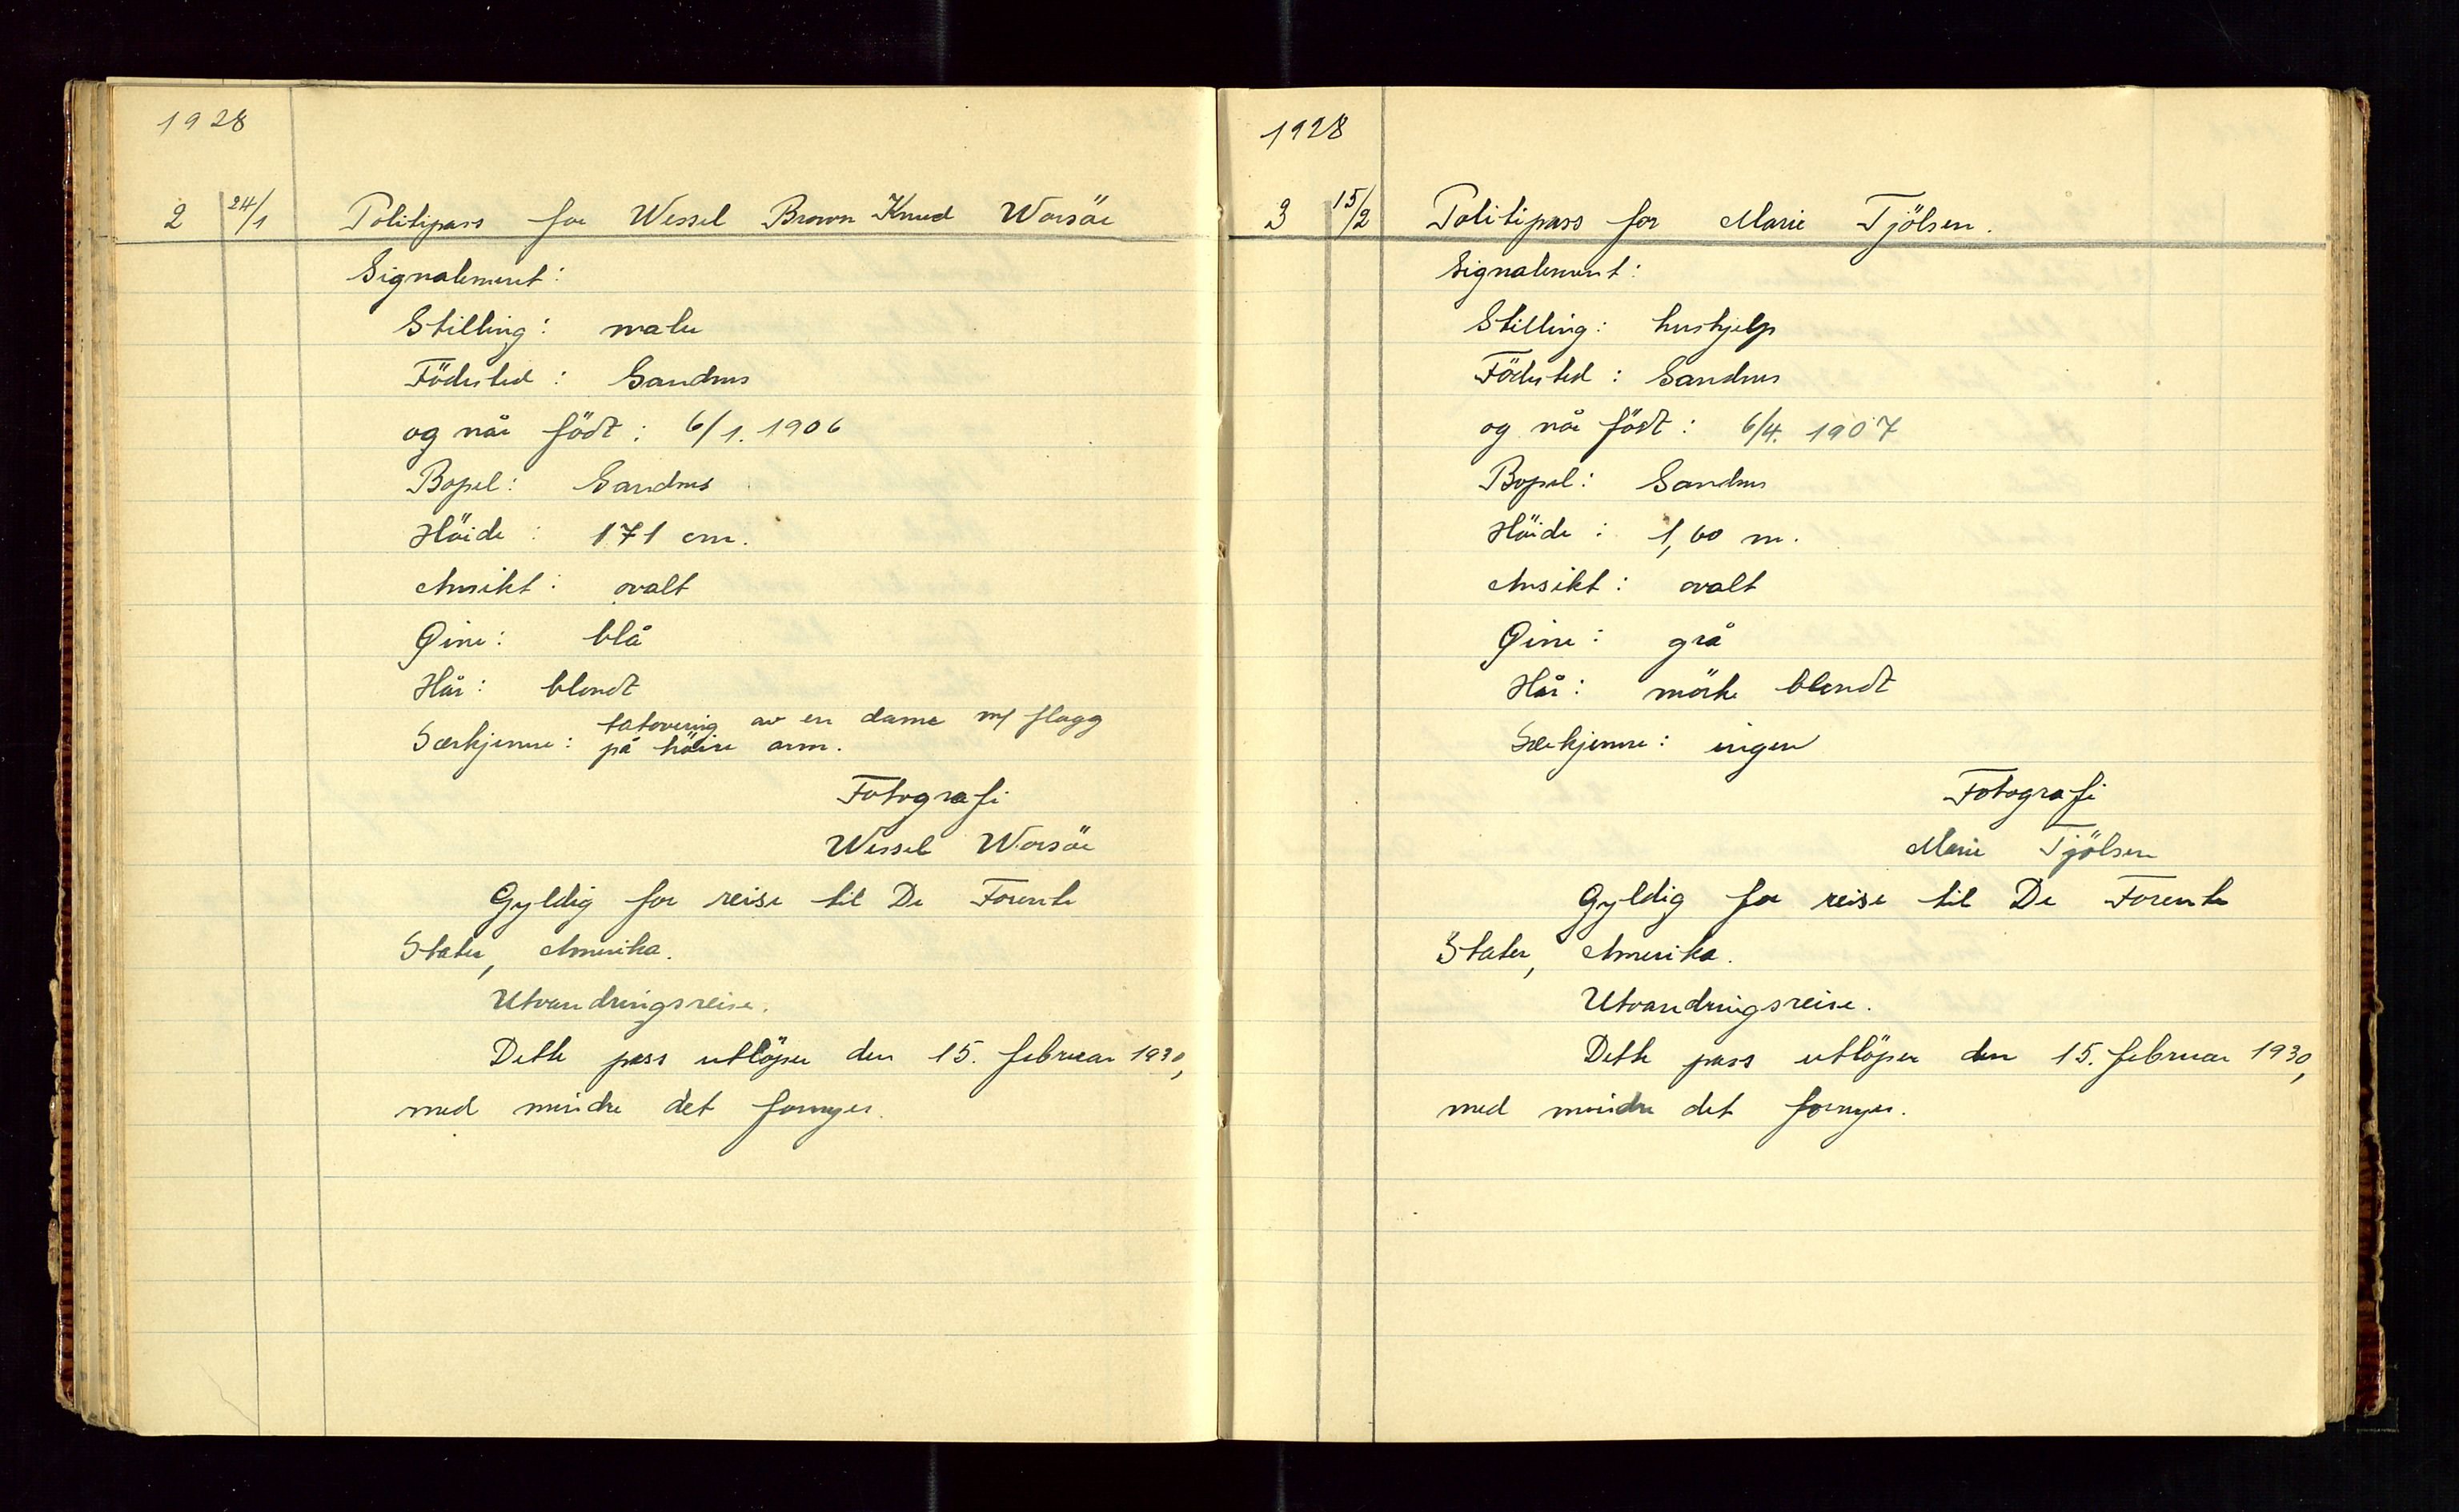 1928
2 24/1 Politipass for Wessel Brown Knud Worsöe
Signalement:
Stilling: maler
Födested: Sandnes
og når födt: 6/1. 1906
Bopel: Sandnes
Höide: 171 cm.
Ansikt: ovalt
Øine: blå
Hår: blondt
Særkjenne: tatovering av en dame m/ flagg
på höire arm.
Fotografi
Wessel Worsöe
Gyldig for reise til De Forente
Stater, Amerika.
Utvandringsreise.
Dette pass utlöper den 15. februar 1930,
med mindre det fornyes.
1928
3 15/2 Politipass for Marie Tjölsen.
Signalement:
Stilling: hushjelp
Födested: Sandnes
og når födt: 6/4. 1907
Bopel: Sandnes
Höide: 1,60 m.
Ansikt: ovalt
Øine: grå
Hår: mörke blondt
Særkjenne: ingen
Fotografi
Marie Tjölsen
Gyldig for reise til De Forente
Stater, Amerika.
Utvandringsreise.
Dette pass utlöper den 15. februar 1930,
med mindre det fornyes.